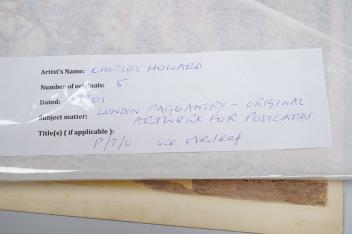 Artist's Name: CHARLES HOWARD
Number of originals: 5
Dated:
Subject matter: LONDON PAGEANTRY - ORIGINAL
ARTWORK FOR POSTCARDS
Title(s) ( if applicable ):
P/T/O see overleaf